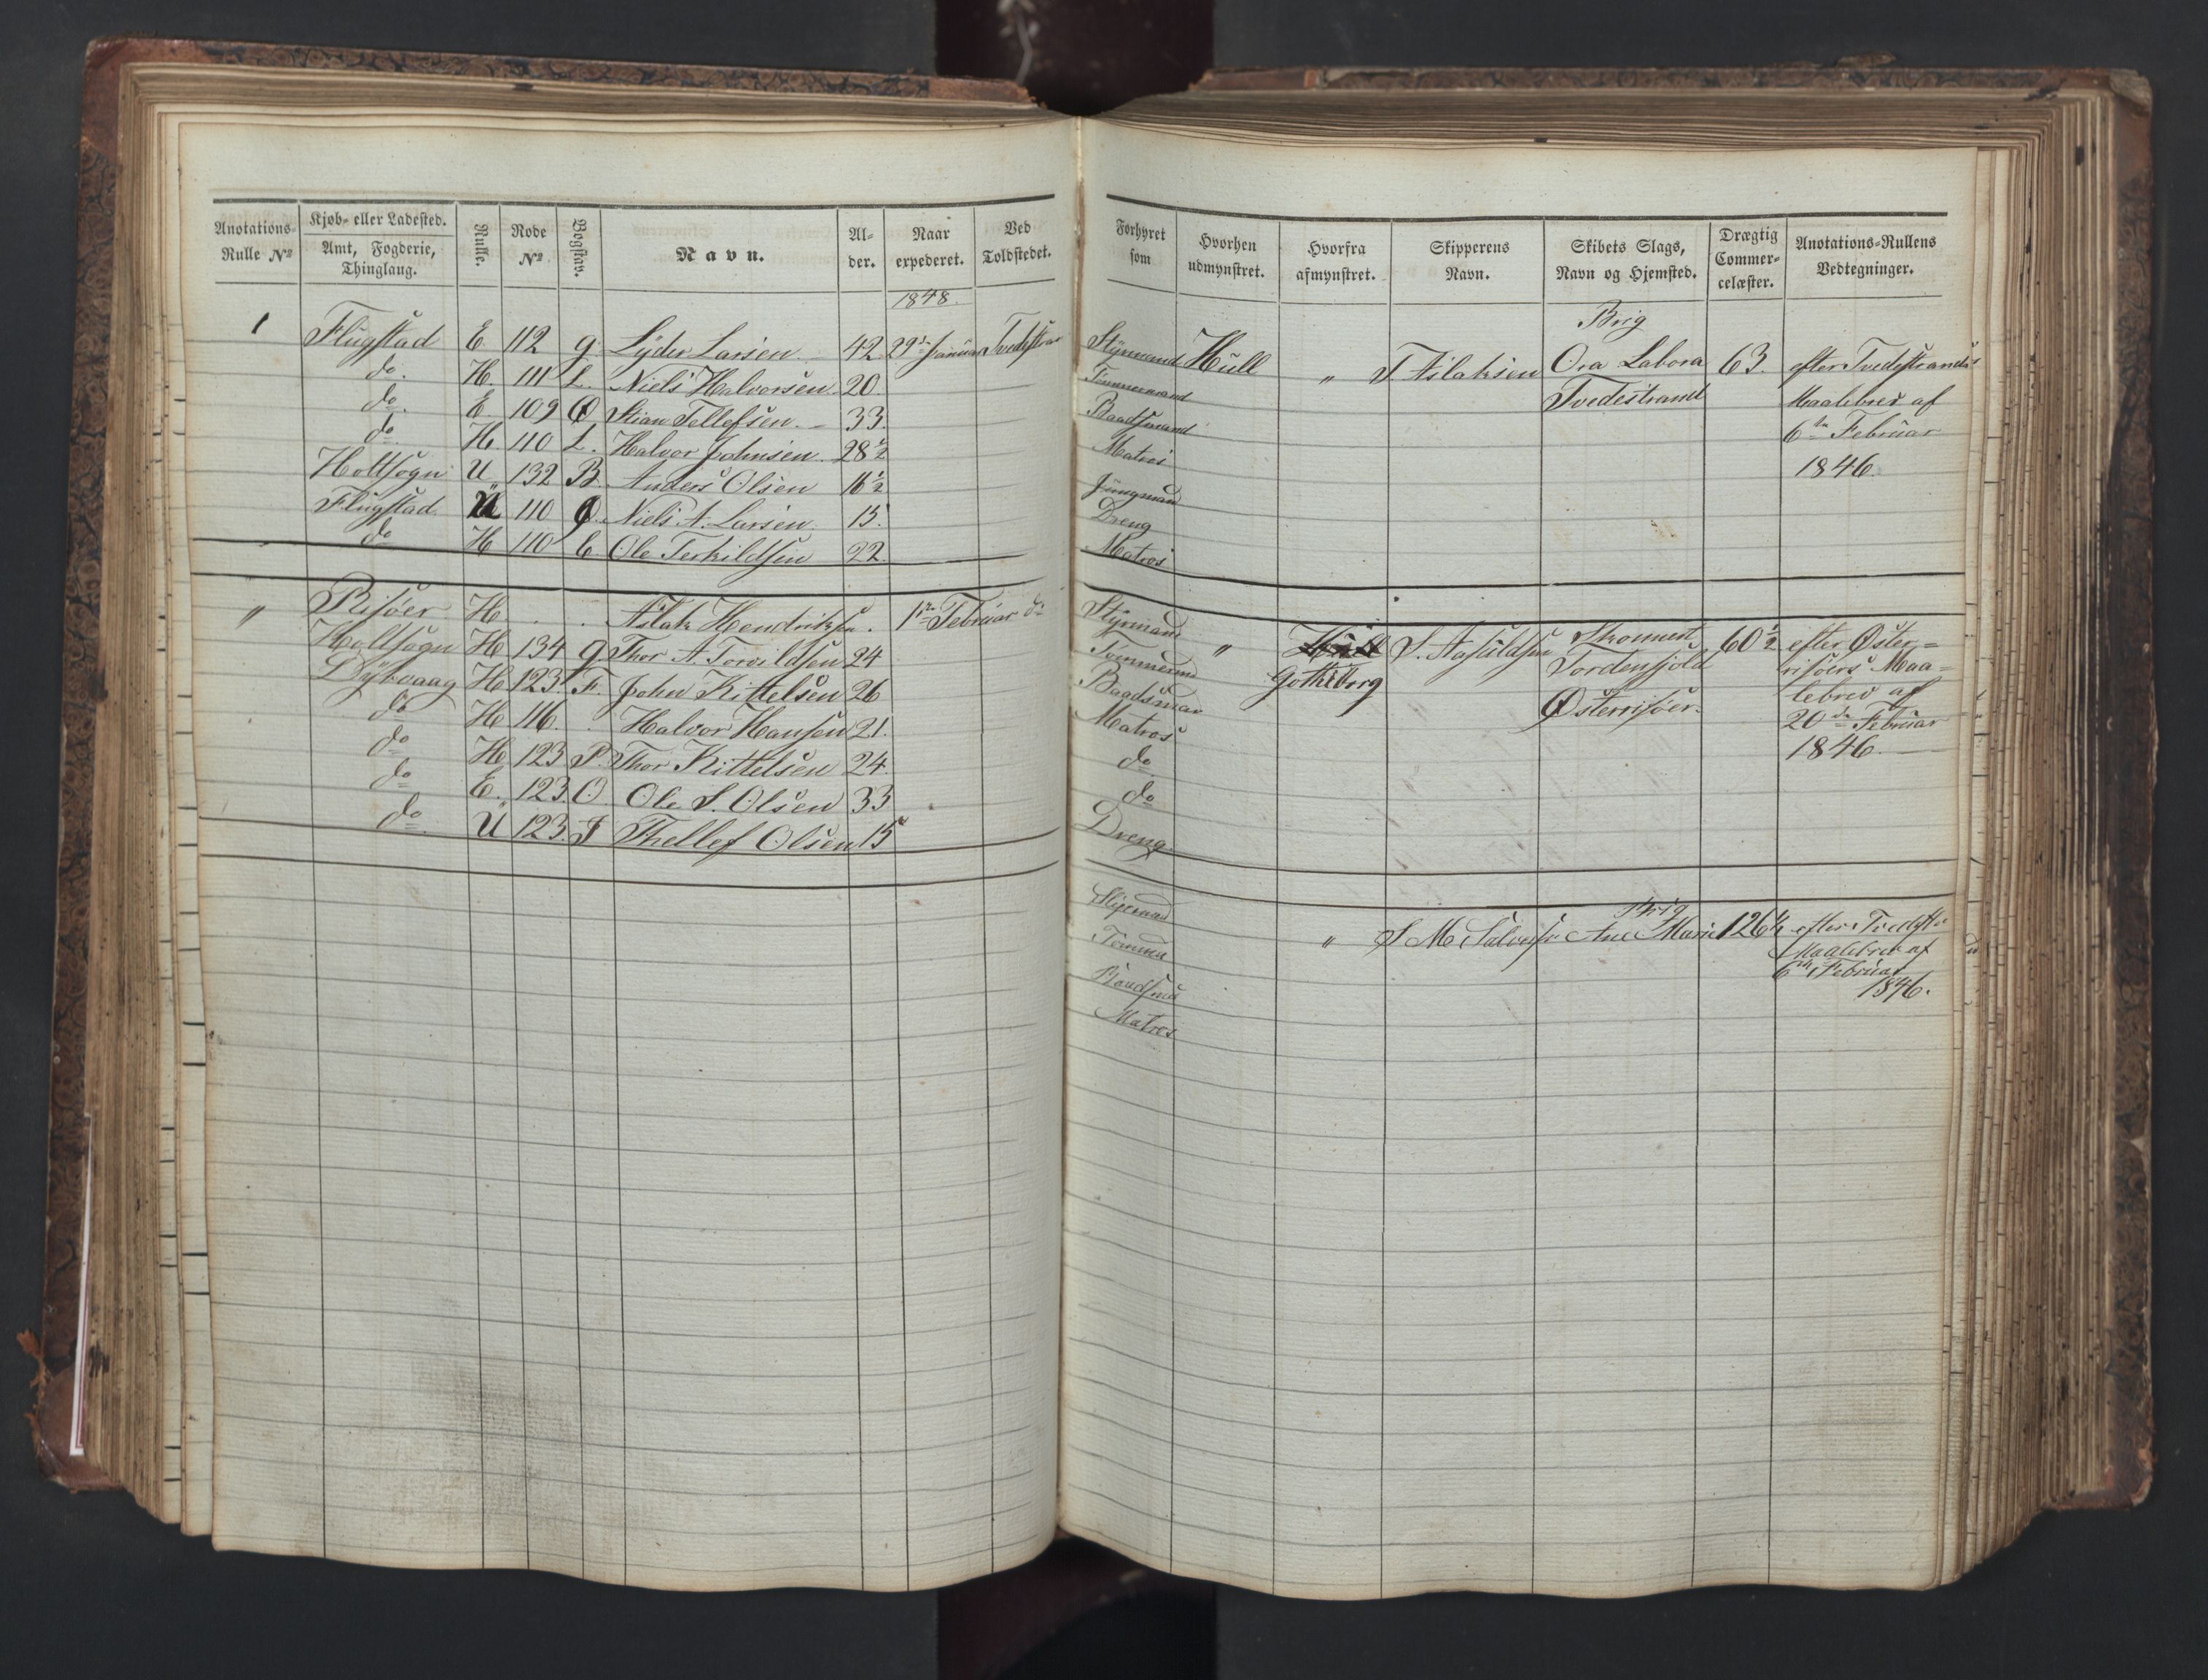 Anotations-Rulle No
Kjøb- eller Ladested.
Amt, Fogderie, Thinglaug.
Rulle.
Rode No
Bogstav.
Navn.
Alder.
Naar expederet.
Ved Toldstedet.
1848.
1 Flugstad E 112 g. Lyder Larsen. 42 29de Januar Tvedestrand
do. H. 111 L. Niels Halvorsen 20.
do. E. 109 Ø Stian Tellefsen. 33.
do H. 110 L. Halvor Johnsen 28½
Holtsogn U 132 B. Anders Olsen 16½
Flugstad U 110 Ø. Niels A. Larsen. 15.
do H 110 C Ole Terkildsen 22.
" Risøer H. . . Aslak Hendriksen. 1ste Februar do
Holtsogn H 134 g. Thor A. Torvildsen 24
Dybvaag H. 123. F. John Kittelsen 26
do H. 116. . Halvor Hansen 21.
do H. 123 P. Thor Kittelsen 24.
do E. 123. O Ole S. Olsen 33
do. U 123. J Thellef Olsen 15
Forhyret som
Hvorhen udmynstret.
Hvorfra afmynstret.
Skipperens Navn.
Skibets Slags, Navn og Hjemsted.
Drægtig Commercelæster.
Anotations-Rullens Vedtegninger.
Brig
Styrmand Hull " T. Aslaksen Ora Labora 63. efter Tvedestrands
Tømmermand Tvedestrand Maalebrev af
Baadsmand 6te Februar
Matros 1846.
Jungmand
Dreng
Matros
Styrmand " Hull S. Skonnert 60½ efter Øster-
Gotheborg Tordenskjold risøers Maa-
Baadsman Østerrisøer. lebrev af
Matros 20de Februar
do 1846.
do
Dreng.
Brig
" S M Ane Marie 126½ efter Tvedestr
Maalebrev af
Baadsmd 6te Februar
Matros 1846.